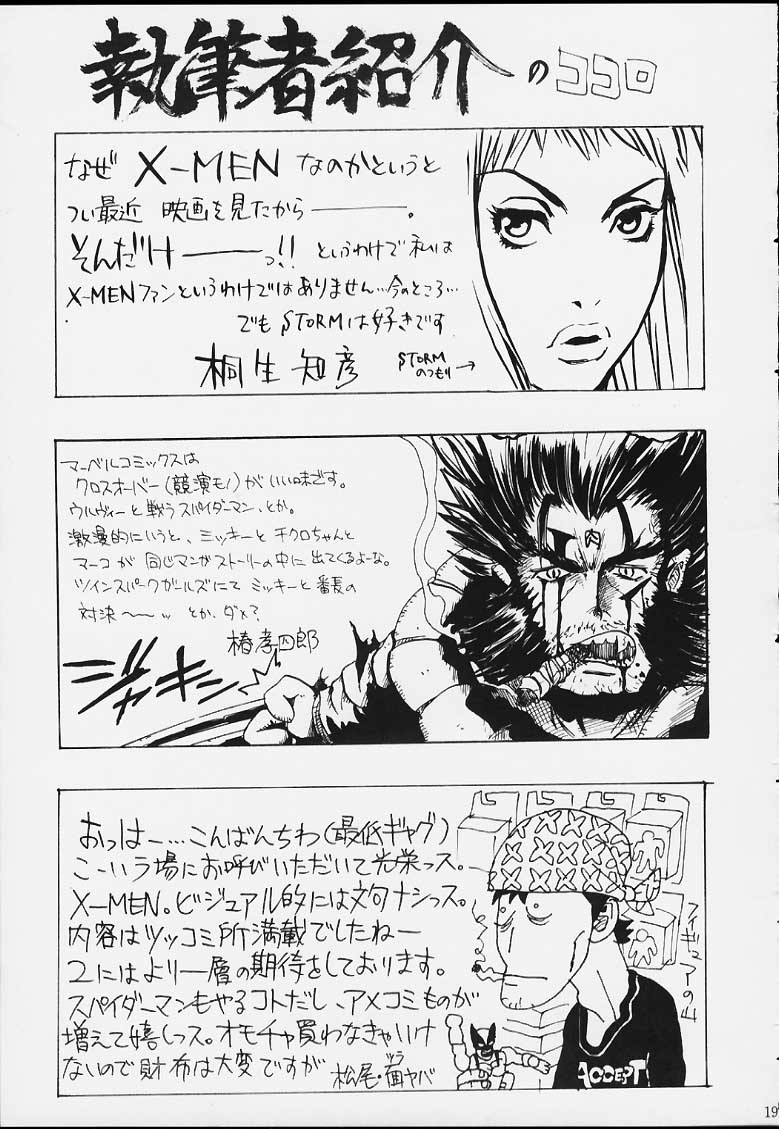 執筆者紹介のココロ
なぜ X-MEN なのかというと
つい最近 映画を見たから―――。
そんだけ――っ!! というわけで私は
X-MENファンというわけではありません…今のところ…
でも STORMは好きです
桐生知彦
STORM
のつもり→
マーベルコミックスは
クロスオーバー(競演モノ)がいい味です。
ウルヴィーと戦うスパイダーマン、とか。
激漫的にいうと、ミッキーと チクロちゃんと
マーコが 同じマンガストーリーの中に 出てくるよーな。
ツインスパークガールズにて ミッキーと番長の
対決〜〜〃 とか、ダメ?
椿孝四郎
ジャキン
おっはー…こんばんちわ(最低ギャグ)
こーいう場にお呼びいただいて光栄っス。
X-MEN。ビジュアル的には文句ナシっス。
内容はツッコミ所満載でしたねー
2にはより一層の期待をしております。
スパイダーマンもやるコトだし、アメコミものが
増えて嬉しっス。オモチャ買わなきゃいけ
ないので財布は大変ですが
松尾・面ヤバ
ヅラ
フィギュアの山
ACCEPT
19